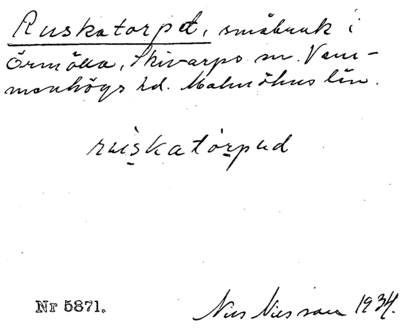 Ruskatorpet, småbruk i
Örmölla, Skivarps sn. Vem-
menhögs hd. Malmöhus län.
ruskatorpud
Nr 5871.
Nils Nilsson 1934.